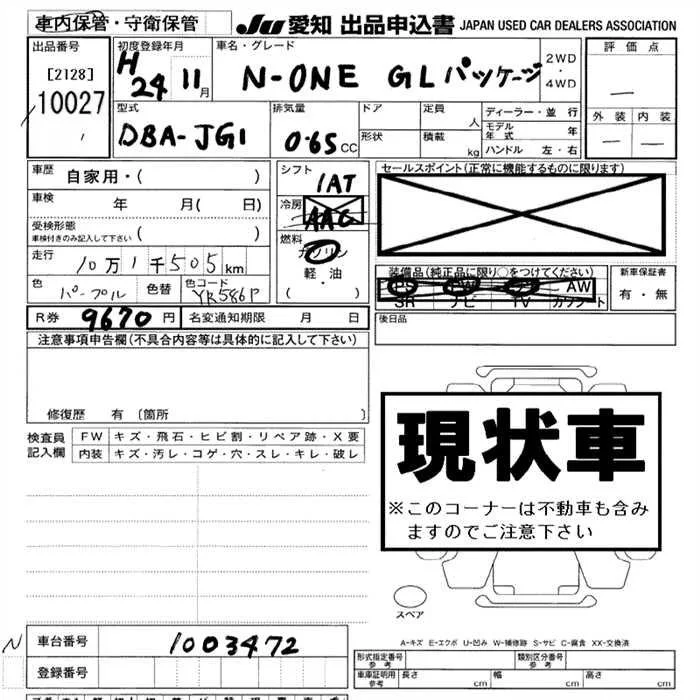 車内保管・守衛保管 JU 愛知 出品申込書 JAPAN USED CAR DEALERS ASSOCIATION
出品番号 初度登録年月 車名・グレード 2WD・4WD 評価点
[2128] H24 11月 N-ONE GLパッケージ
10027
型式 排気量 ドア 定員 人 ディーラー・並行 外装 内装
DBA-JG1 0.65 CC 形状 積載 kg モデル年式 年
ハンドル 左・右
車歴 自家用・( ) シフト 1AT セールスポイント(正常に機能するものに限ります)
車検 年 月( 日) 冷房 AAC
受検形態 ( ) 燃料 ガソリン
車検付きのみ記入して下さい
走行 10万1千505km 軽・油 装備品(純正品に限り○をつけてください) 新車保証書
( ・ ) PS PW AW 有・無
色 パープル 色替 色コード YR586P SR ナビ TV カワシート
R券 9670円 名変通知期限 月 日 後日品
注意事項申告欄(不具合内容等は具体的に記入して下さい)
修復歴 有〔箇所 〕
現状車
※このコーナーは不動車も含み
ますのでご注意下さい
検査員 FW キズ・飛石・ヒビ割・リペア跡・X要
記入欄 内装 キズ・汚レ・コゲ・穴・スレ・キレ・破レ
スペア
A-キズ E-エクボ U-凹み W-補修跡 S-サビ C-腐食 XX-交換済
N 車台番号 1003472
形式指定番号 参考 類別区分番号 参考
登録番号 車庫証明用 参考 長さ cm 幅 cm 高さ cm